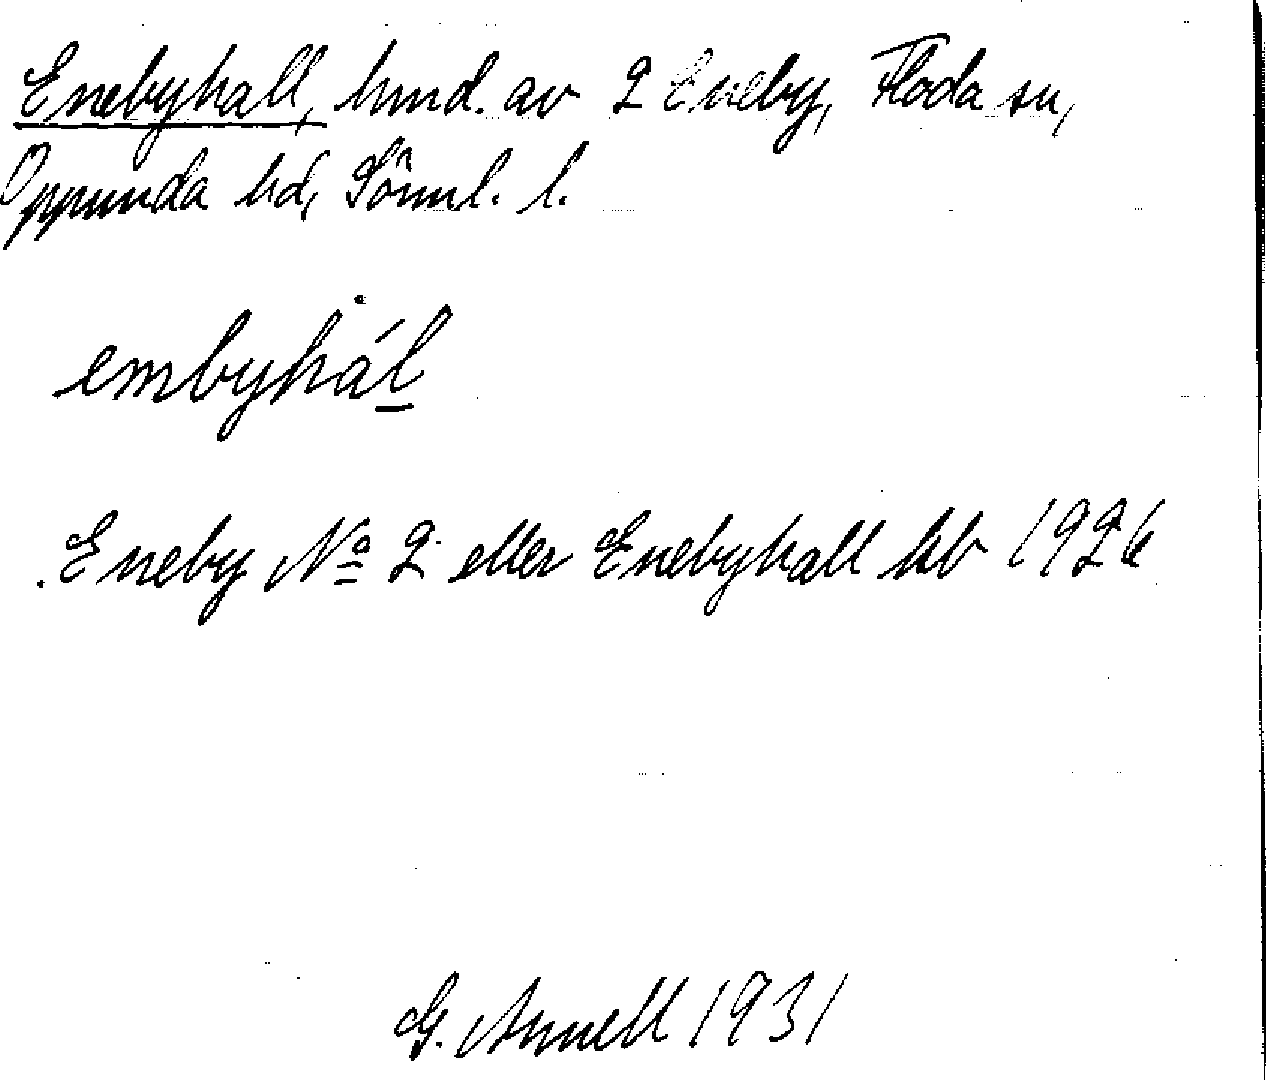 Enebyhall, hmd. av 2 Eneby, Floda sn,
Oppunda hd, Söml. l.
embyhál
Eneby No 2 eller Enebyhall kb 1926
G. Annell 1931